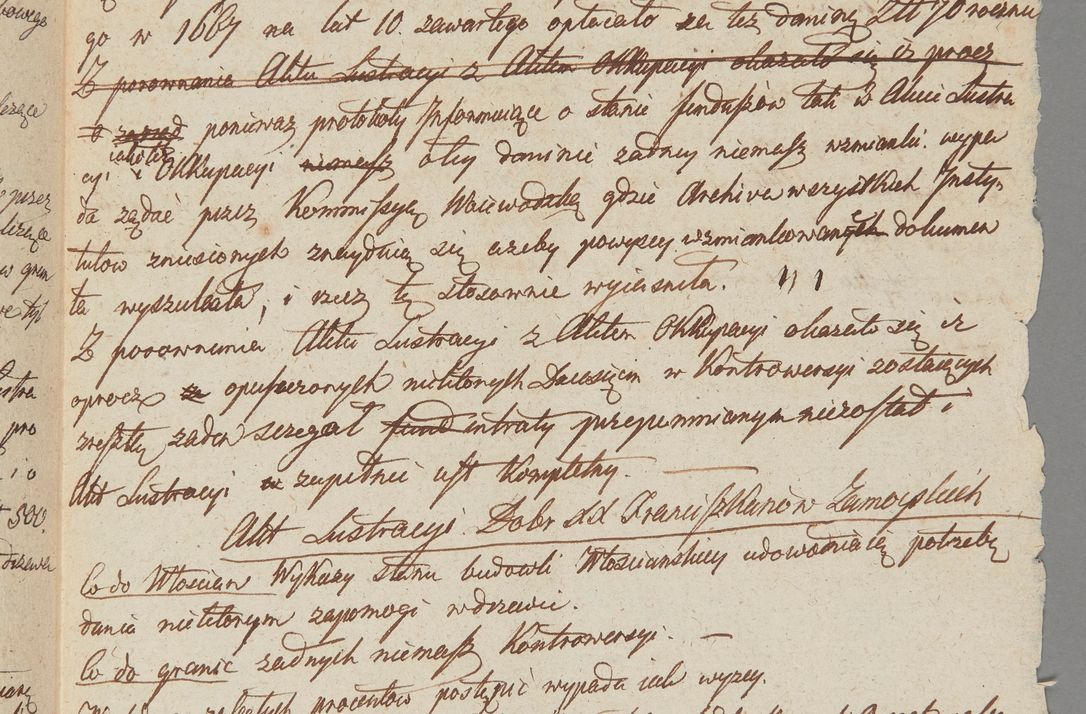 go w 1667 na lat 10. zawartego opłacało za też daninę Zł 70 rocznie
Z porownania Aktu Lustracyi z Aktem Okkupacyi okazało się iż procz
ponieważ protokoły Informuiące o stanie funduszow tak z Akcie Lustra
cyi iakotez i Okkupacyi niemasz o tey daninie zadney niemasz wzmianki. wypa
da żądać przez Kommissyę Woiewodzką gdzie Archiva wszystkich Insty,
tutow zniesionych znayduią się ażeby powyzey wzmiankowanych dokumen
ta wyszukała, i rzecz tę stosownie wyiasniła.
Z porownania Aktu Lustracyi z Aktem Okkupacyi okazało się iz
oprocz opuszczonych niektorych Dziesięcin w Kontrowersyi zostaiących
zresztą zaden szczegał fund intraty przepomnianym niezostał i
Akt Lustracyi zupełnie iest Kompletny.
Akt Lustracyi Dobr XX Franciszkanow Zamoyskich
Co do Włoscian Wykazy stanu budowli Włosciańskiey udowodniaią potrzebę
dania niektorym zapomogi w drzewie.
Co do granic zadnych niemasz Kontrowersyi. —
procentow postąpić wypada iak wyzey.
bowego
przez
liczące
w gran
pro
i o
500.
drzewa